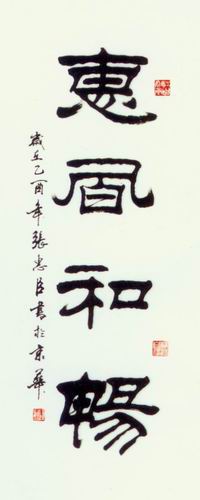 惠風和暢
歲在乙酉年張忠臣書於京華